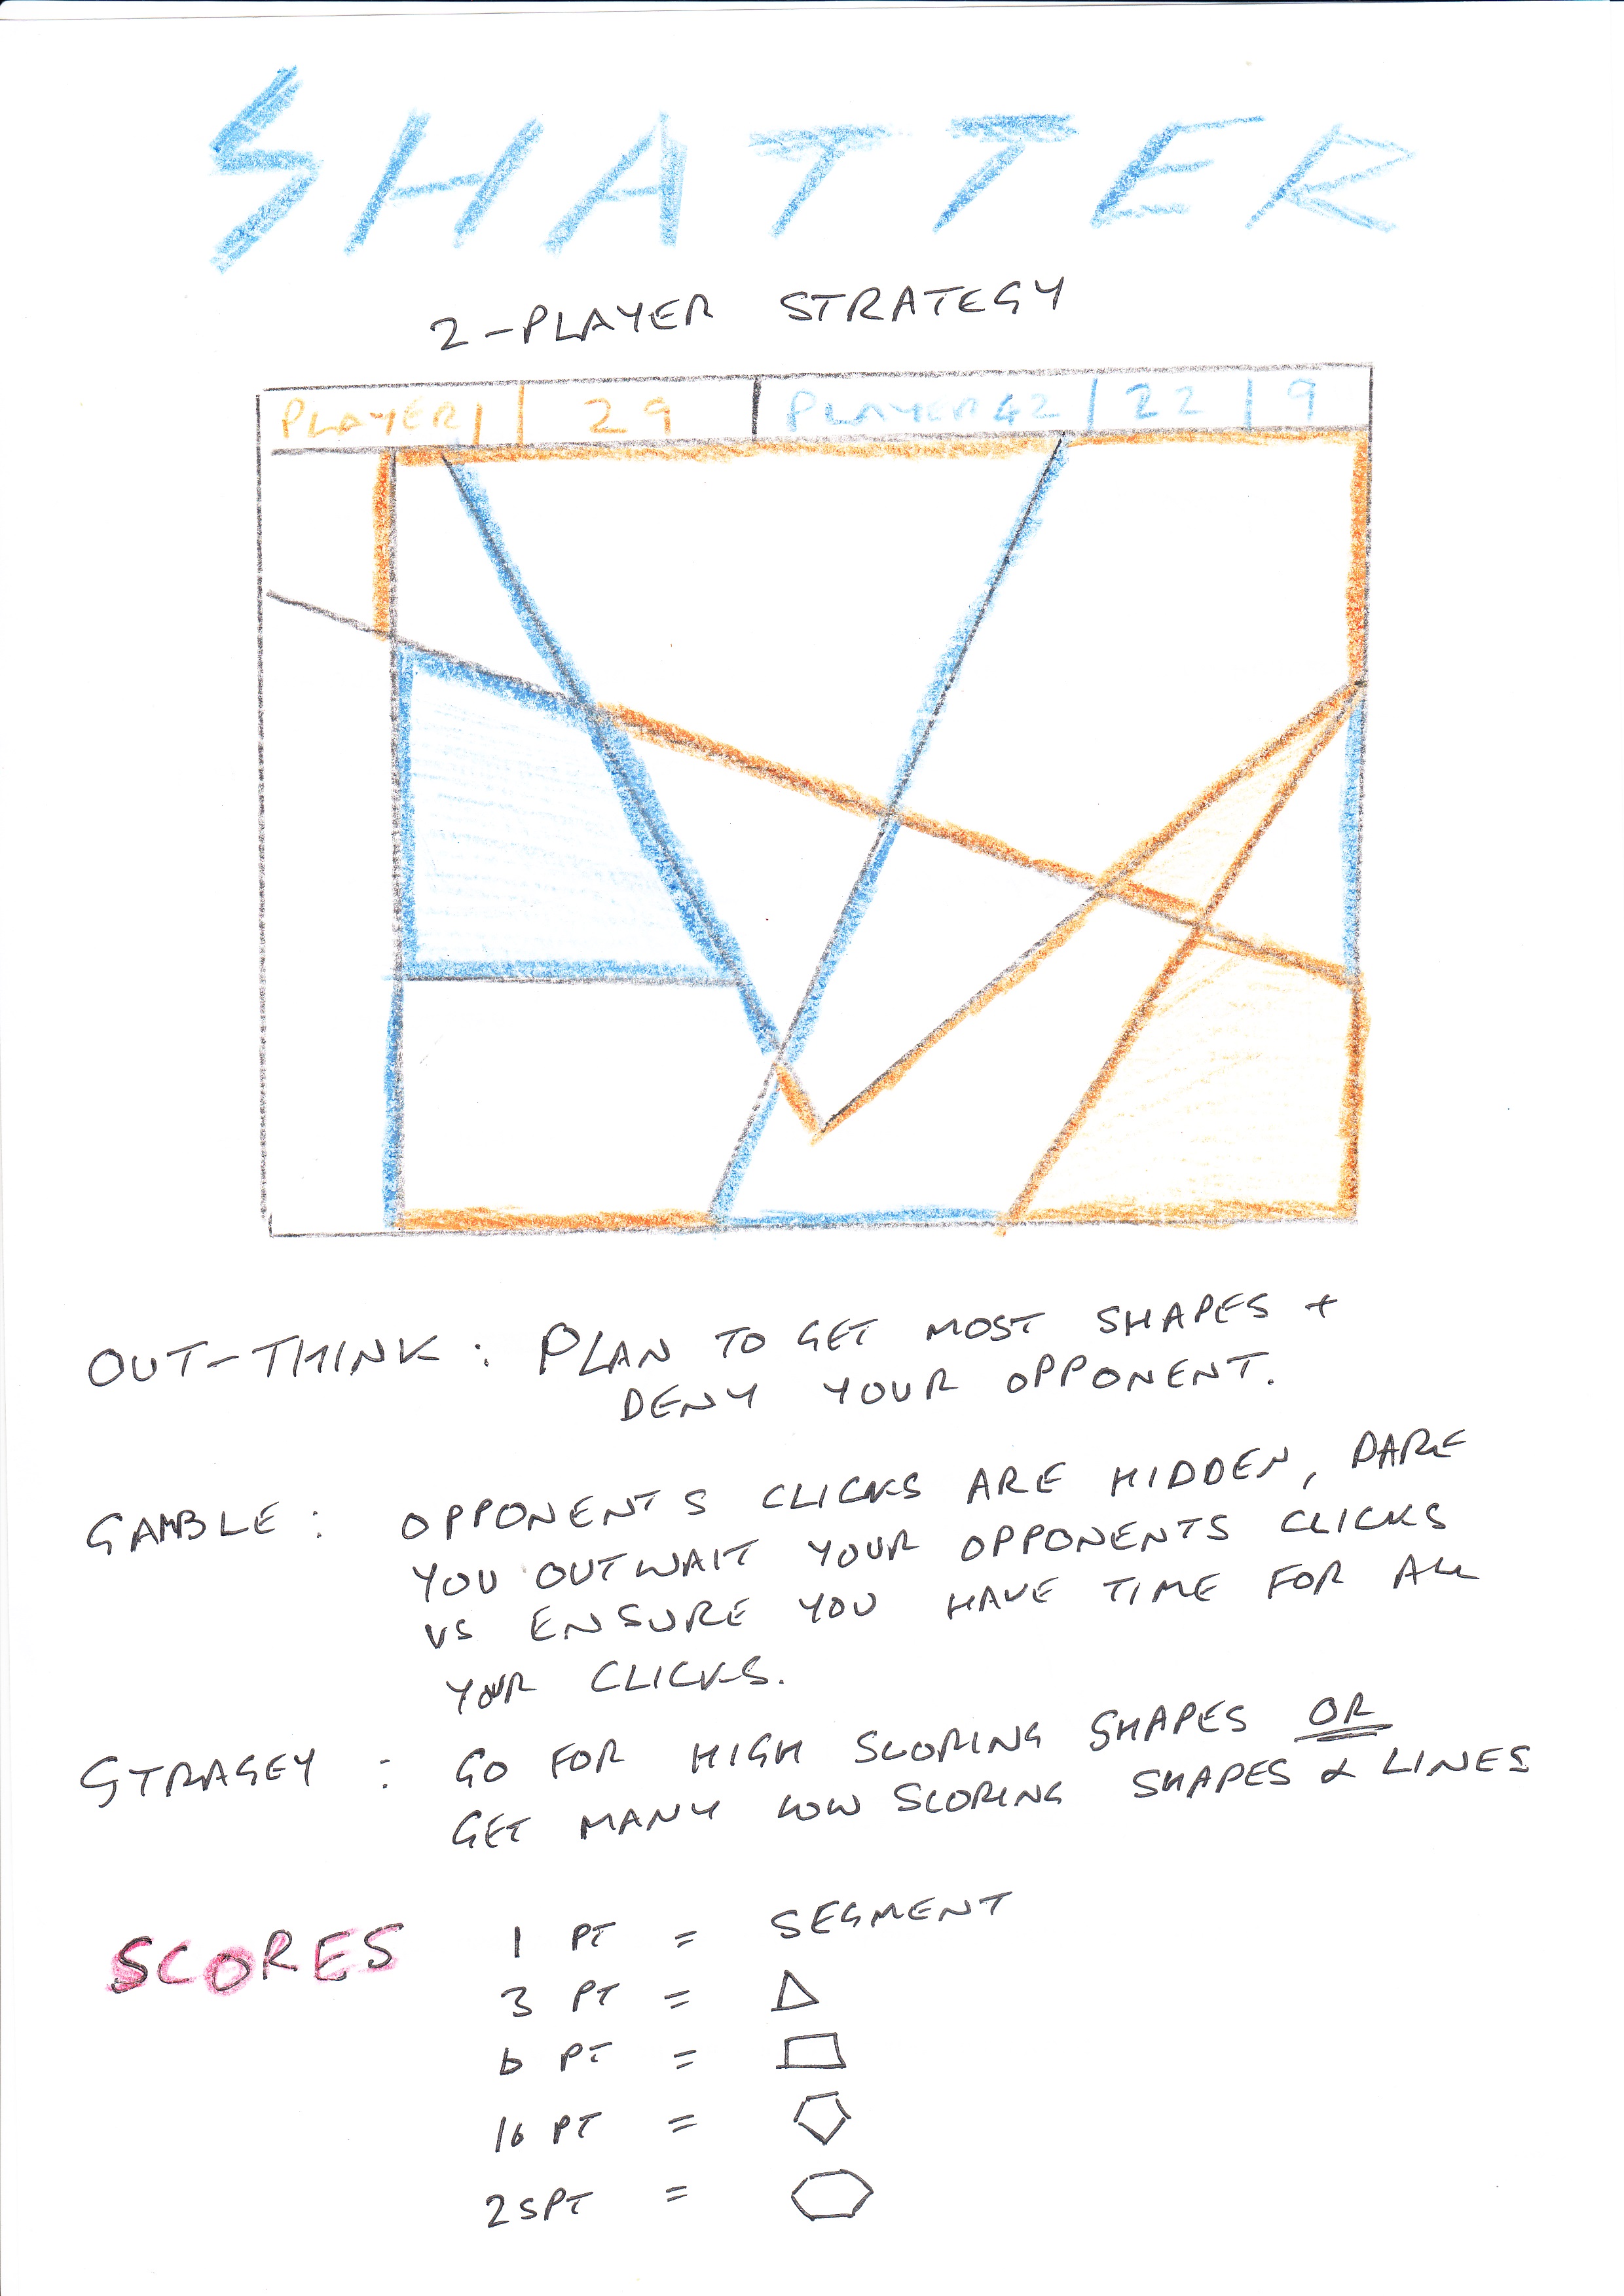 SHATTER
2-PLAYER STRATEGY
PLAYER 1 | 29 | PLAYER 42 | 22 | 9
OUT-THINK: PLAN TO GET MOST SHAPES +
DENY YOUR OPPONENT.
GAMBLE: OPPONENTS CLICKS ARE HIDDEN, DARE
YOU OUTWAIT YOUR OPPONENTS CLICKS
VS ENSURE YOU HAVE TIME FOR ALL
YOUR CLICKS.
STRAGEY: GO FOR HIGH SCORING SHAPES OR
GET MANY LOW SCORING SHAPES & LINES
SCORES 1 PT = SEGMENT
3 PT =
6 PT =
16 PT =
25PT =